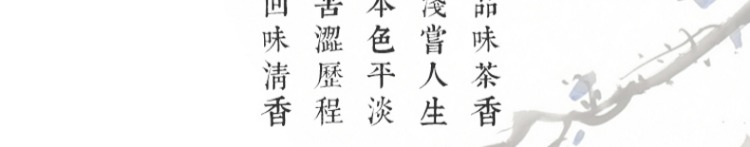 品味茶香
淺嘗人生
本色平淡
苦澀歷程
回味清香